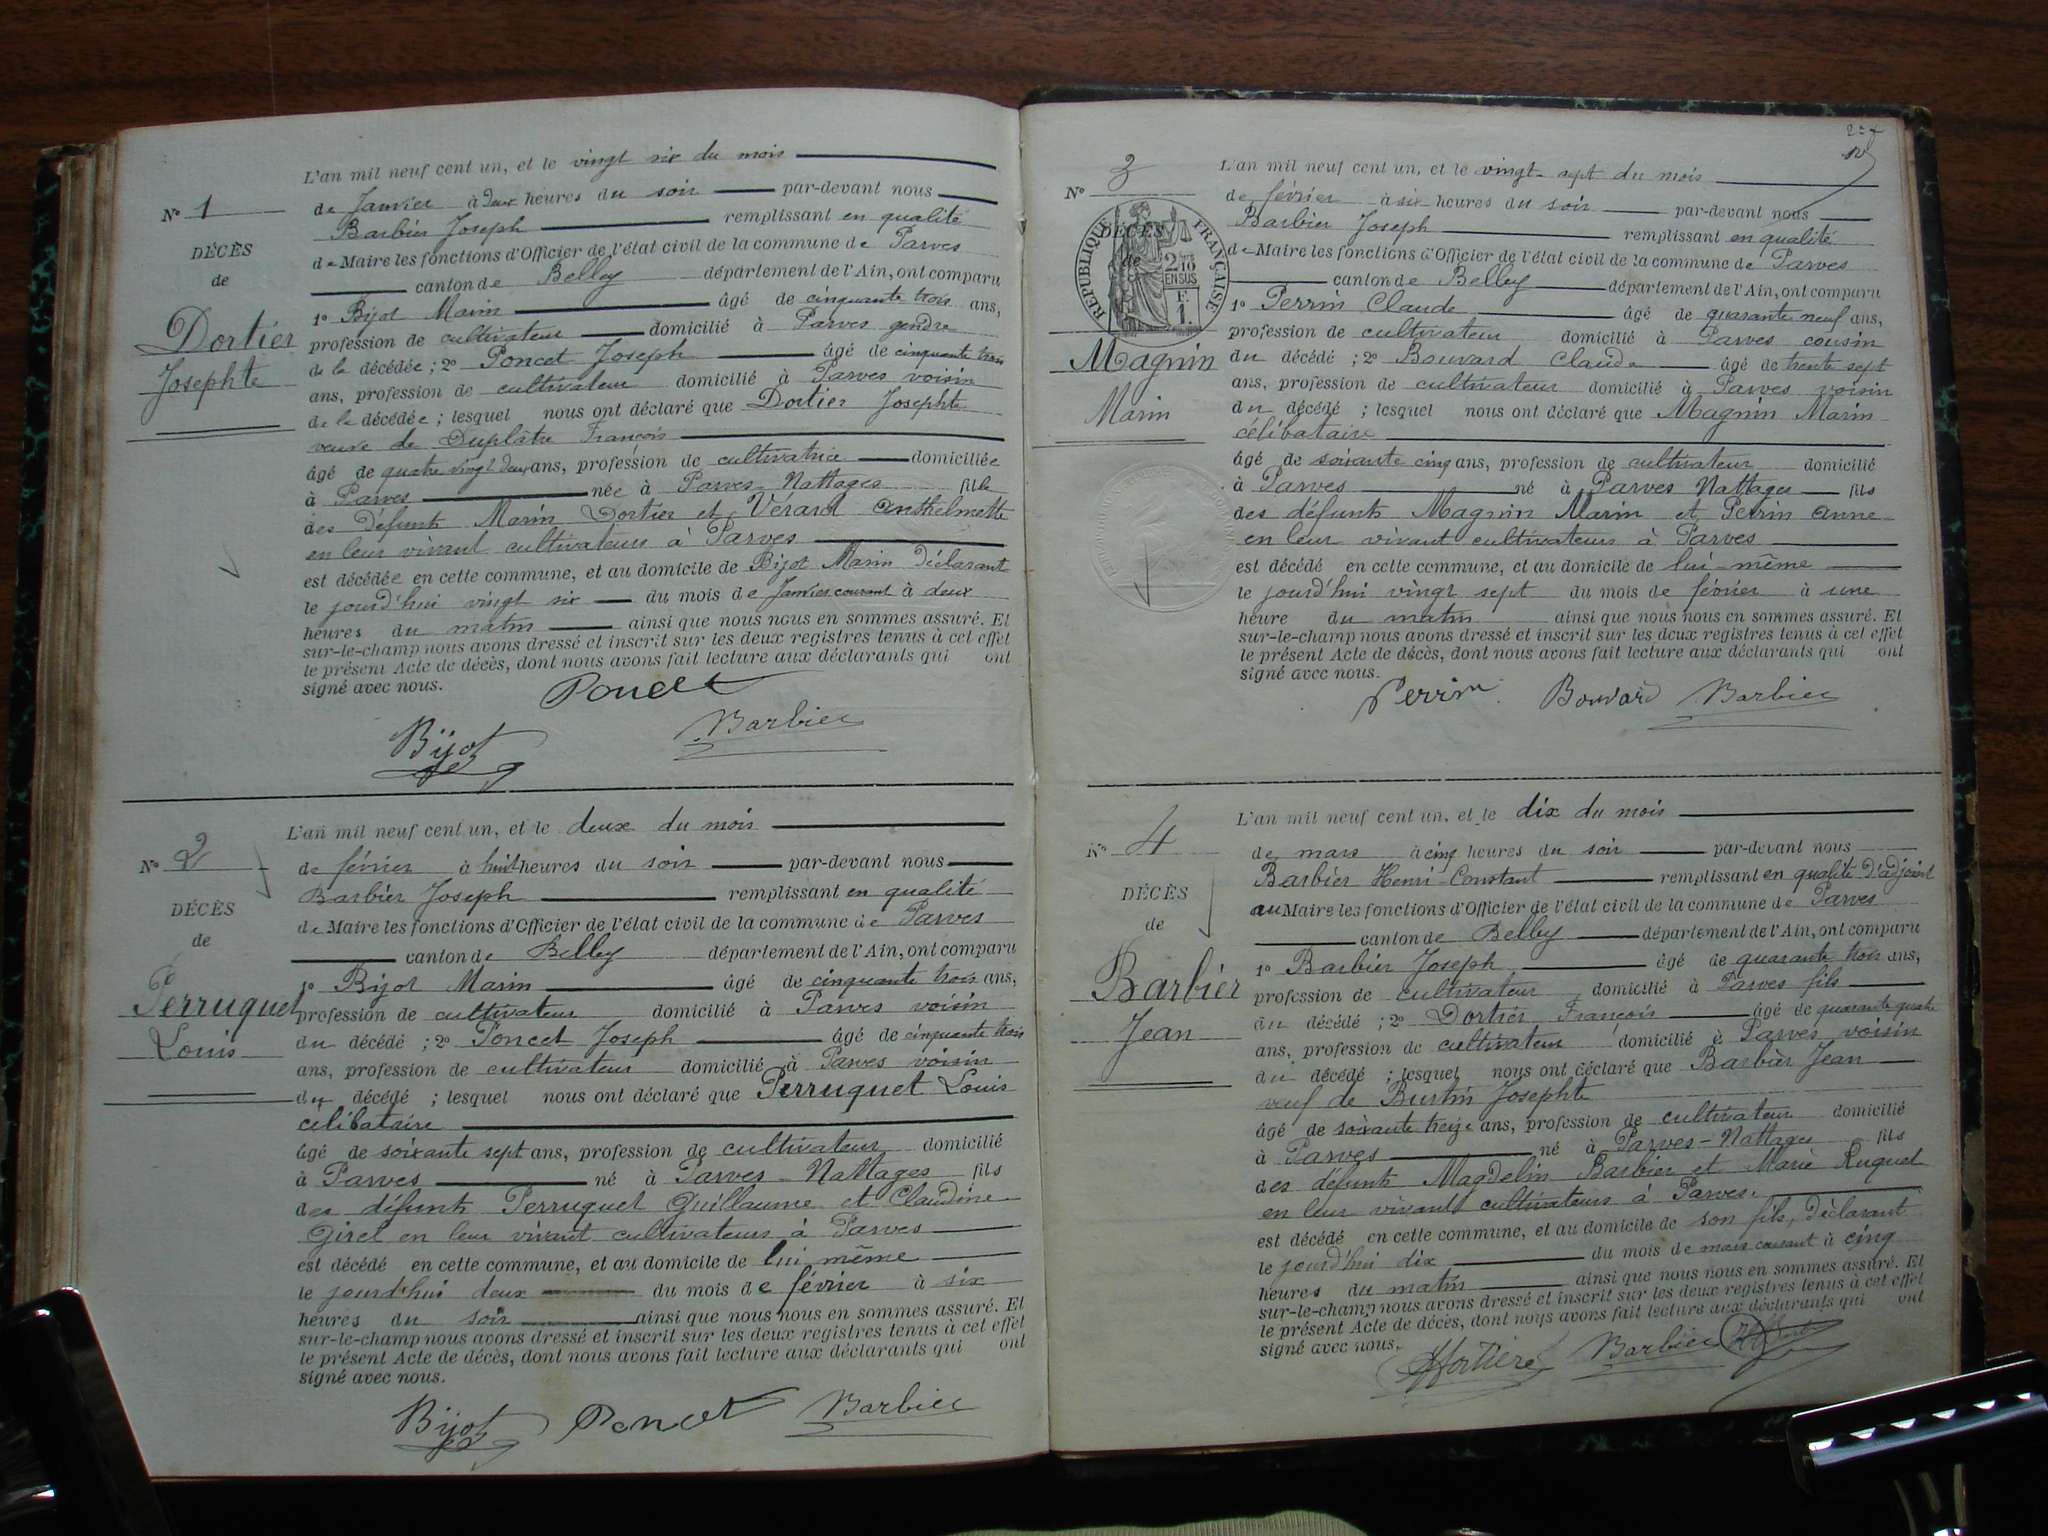 N° 1
DÉCÈS
de
Dortier
Josephte
L'an mil neuf cent un, et le vingt six du mois
de Janvier à deux heures du soir par-devant nous
Barbier Joseph remplissant en qualité
de Maire les fonctions d'Officier de l'état civil de la commune de Parves
canton de Belley département de l'Ain, ont comparu
1° Bijot Marin âgé de cinquante trois ans,
profession de cultivateur domicilié à Parves gendre
de la décédée ; 2° Poncet Joseph âgé de cinquante trois
ans, profession de cultivateur domicilié à Parves voisin
de la décédée ; lesquel nous ont déclaré que Dortier Josephte
veuve de Duplâtre François
âgé de quatre vingt deux ans, profession de cultivatrice domiciliée
à Parves née à Parves-Nattages fille
des défunts Marin Dortier et Vérard Anthelmette
en leur vivant cultivateurs à Parves
est décédée en cette commune, et au domicile de Bijot Marin Déclarant
le jourd'hui vingt six du mois de Janvier courant à deux
heures du matin ainsi que nous nous en sommes assuré. Et
sur-le-champ nous avons dressé et inscrit sur les deux registres tenus à cet effet
le présent Acte de décès, dont nous avons fait lecture aux déclarants qui ont
signé avec nous.
Poncet
Bijot Barbier
N° 2
DÉCÈS
de
Perruquet
Louis
L'an mil neuf cent un, et le deux du mois
de février à huit heures du soir par-devant nous
Barbier Joseph remplissant en qualité
de Maire les fonctions d'Officier de l'état civil de la commune de Parves
canton de Belley département de l'Ain, ont comparu
1° Bijot Marin âgé de cinquante trois ans,
profession de cultivateur domicilié à Parves voisin
du décédé ; 2° Poncet Joseph âgé de cinquante trois
ans, profession de cultivateur domicilié à Parves voisin
du décédé ; lesquel nous ont déclaré que Perruquet Louis
célibataire
âgé de soixante sept ans, profession de cultivateur domicilié
à Parves né à Parves-Nattages fils
des défunts Perruquet Guillaume et Claudine
Girel en leur vivant cultivateurs à Parves
est décédé en cette commune, et au domicile de lui même
le jourd'hui deux du mois de février à six
heures du soir ainsi que nous nous en sommes assuré. Et
sur-le-champ nous avons dressé et inscrit sur les deux registres tenus à cet effet
le présent Acte de décès, dont nous avons fait lecture aux déclarants qui ont
signé avec nous.
Bijot Poncet Barbier
N° 3
RÉPUBLIQUE FRANÇAISE
DÉCÈS
de
2/10
EN SUS
F.
1.
Magnin
Marin
L'an mil neuf cent un, et le vingt-sept du mois
de février à six heures du soir par-devant nous
Barbier Joseph remplissant en qualité
de Maire les fonctions d'Officier de l'état civil de la commune de Parves
canton de Belley département de l'Ain, ont comparu
1° Perrin Claude âgé de quarante neuf ans,
profession de cultivateur domicilié à Parves cousin
du décédé ; 2° Bouvard Claude âgé de trente sept
ans, profession de cultivateur domicilié à Parves voisin
du décédé ; lesquel nous ont déclaré que Magnin Marin
célibataire
âgé de soixante cinq ans, profession de cultivateur domicilié
à Parves né à Parves Nattages fils
des défunts Magnin Marin et Perrin Anne
en leur vivant cultivateurs à Parves
est décédé en cette commune, et au domicile de lui-même
le jourd'hui vingt sept du mois de février à une
heure du matin ainsi que nous nous en sommes assuré. Et
sur-le-champ nous avons dressé et inscrit sur les deux registres tenus à cet effet
le présent Acte de décès, dont nous avons fait lecture aux déclarants qui ont
signé avec nous.
Perrin Bouvard Barbier
N° 4
DÉCÈS
de
Barbier
Jean
L'an mil neuf cent un, et le dix du mois
de mars à cinq heures du soir par-devant nous
Barbier Henri-Constant remplissant en qualité d'adjoint
au Maire les fonctions d'Officier de l'état civil de la commune de Parves
canton de Belley département de l'Ain, ont comparu
1° Barbier Joseph âgé de quarante trois ans,
profession de cultivateur domicilié à Parves fils
du décédé ; 2° Dortier François âgé de quarante quatre
ans, profession de cultivateur domicilié à Parves voisin
du décédé ; lesquel nous ont déclaré que Barbier Jean
veuf de Burtin Josephte
âgé de soixante treize ans, profession de cultivateur domicilié
à Parves né à Parves-Nattages fils
des défunts Magdelin Barbier et Marie Ruquet
en leur vivant cultivateurs à Parves.
est décédé en cette commune, et au domicile de son fils, Déclarant
le jourd'hui dix du mois de mars courant à cinq
heures du matin ainsi que nous nous en sommes assuré. Et
sur-le-champ nous avons dressé et inscrit sur les deux registres tenus à cet effet
le présent Acte de décès, dont nous avons fait lecture aux déclarants qui ont
signé avec nous.
Barbier